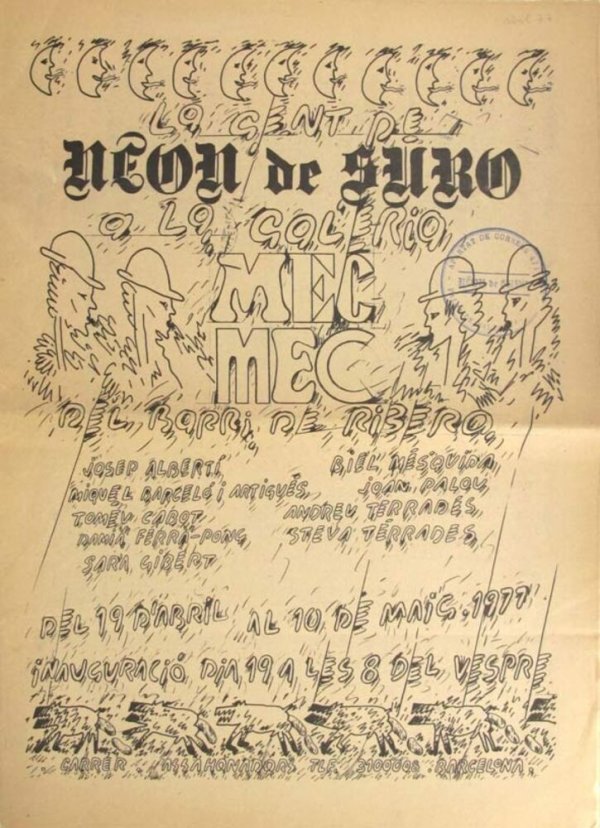 abril 77
La GENT DE
NEON de SURO
a La Galeria
MEC
MEC
DEL BARRi DE RiBERa
JOSEP ALBERTÍ
MiQUEL BARCELÓ i ARTiGUES
TOMEU CABOT
DAMIÀ FERRÀ-PONÇ
SARA GiBERT
BiEL MESQUiDA
JOAN PALOU
ANDREU TERRADES
STEVA TERRADES
DEL 19 D'ABRiL AL 10 DE MAiG. 1977
iNAUGURACiÓ DiA 19 A LES 8 DEL VESPRE
CARRER ASSAHONADORS TLF. BARCELONA